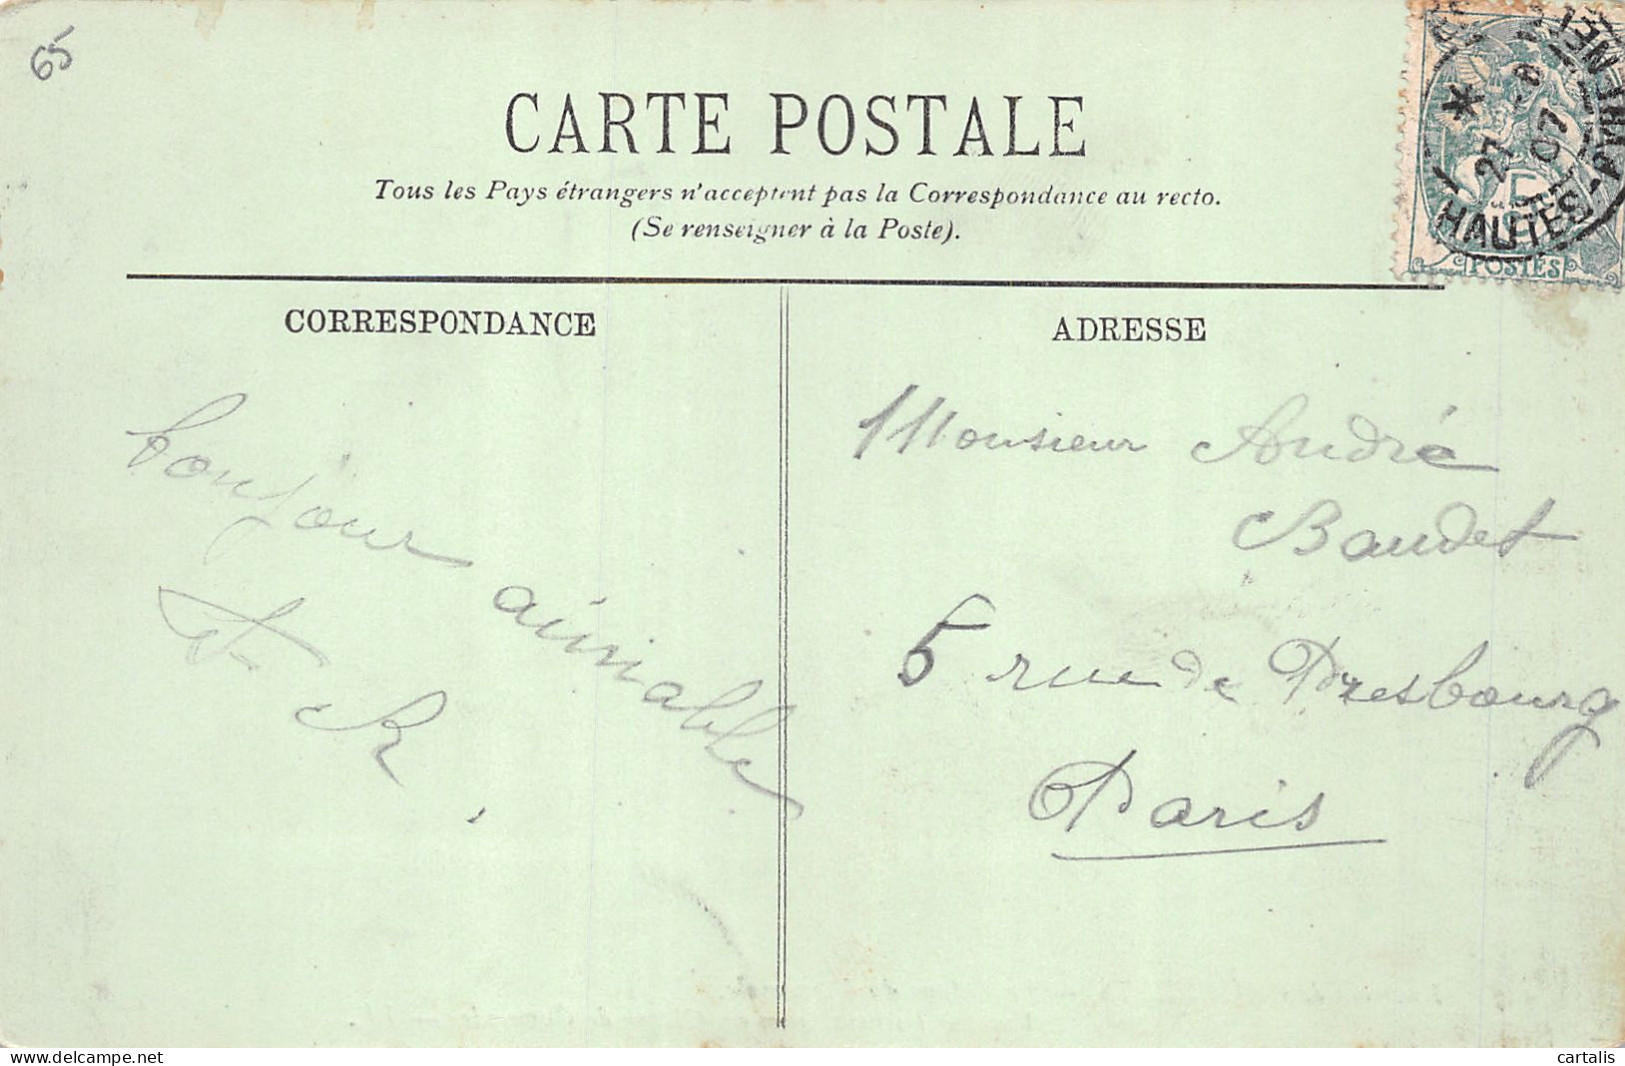 65
CARTE POSTALE
Tous les Pays étrangers n'acceptent pas la Correspondance au recto.
(Se renseigner à la Poste).
27 -8
07
HAUTES
5
POSTES
CORRESPONDANCE
bonjour aimable
R.
ADRESSE
Monsieur André
Baudet
5 rue de Presbourg
Paris
cartalis
delcampe.net